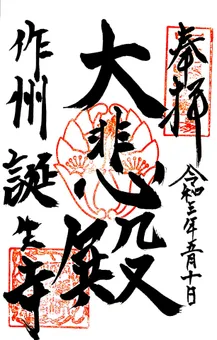 奉拝
令和三年五月十日
大悲心殿
作州 誕生寺